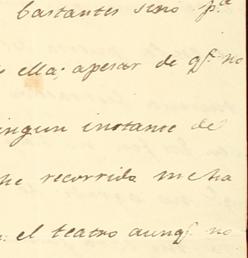 bastantes sino p.a
ella; apesar de q.e no
ingun instante de
he recorrida me ha
el teatro aunq.e no